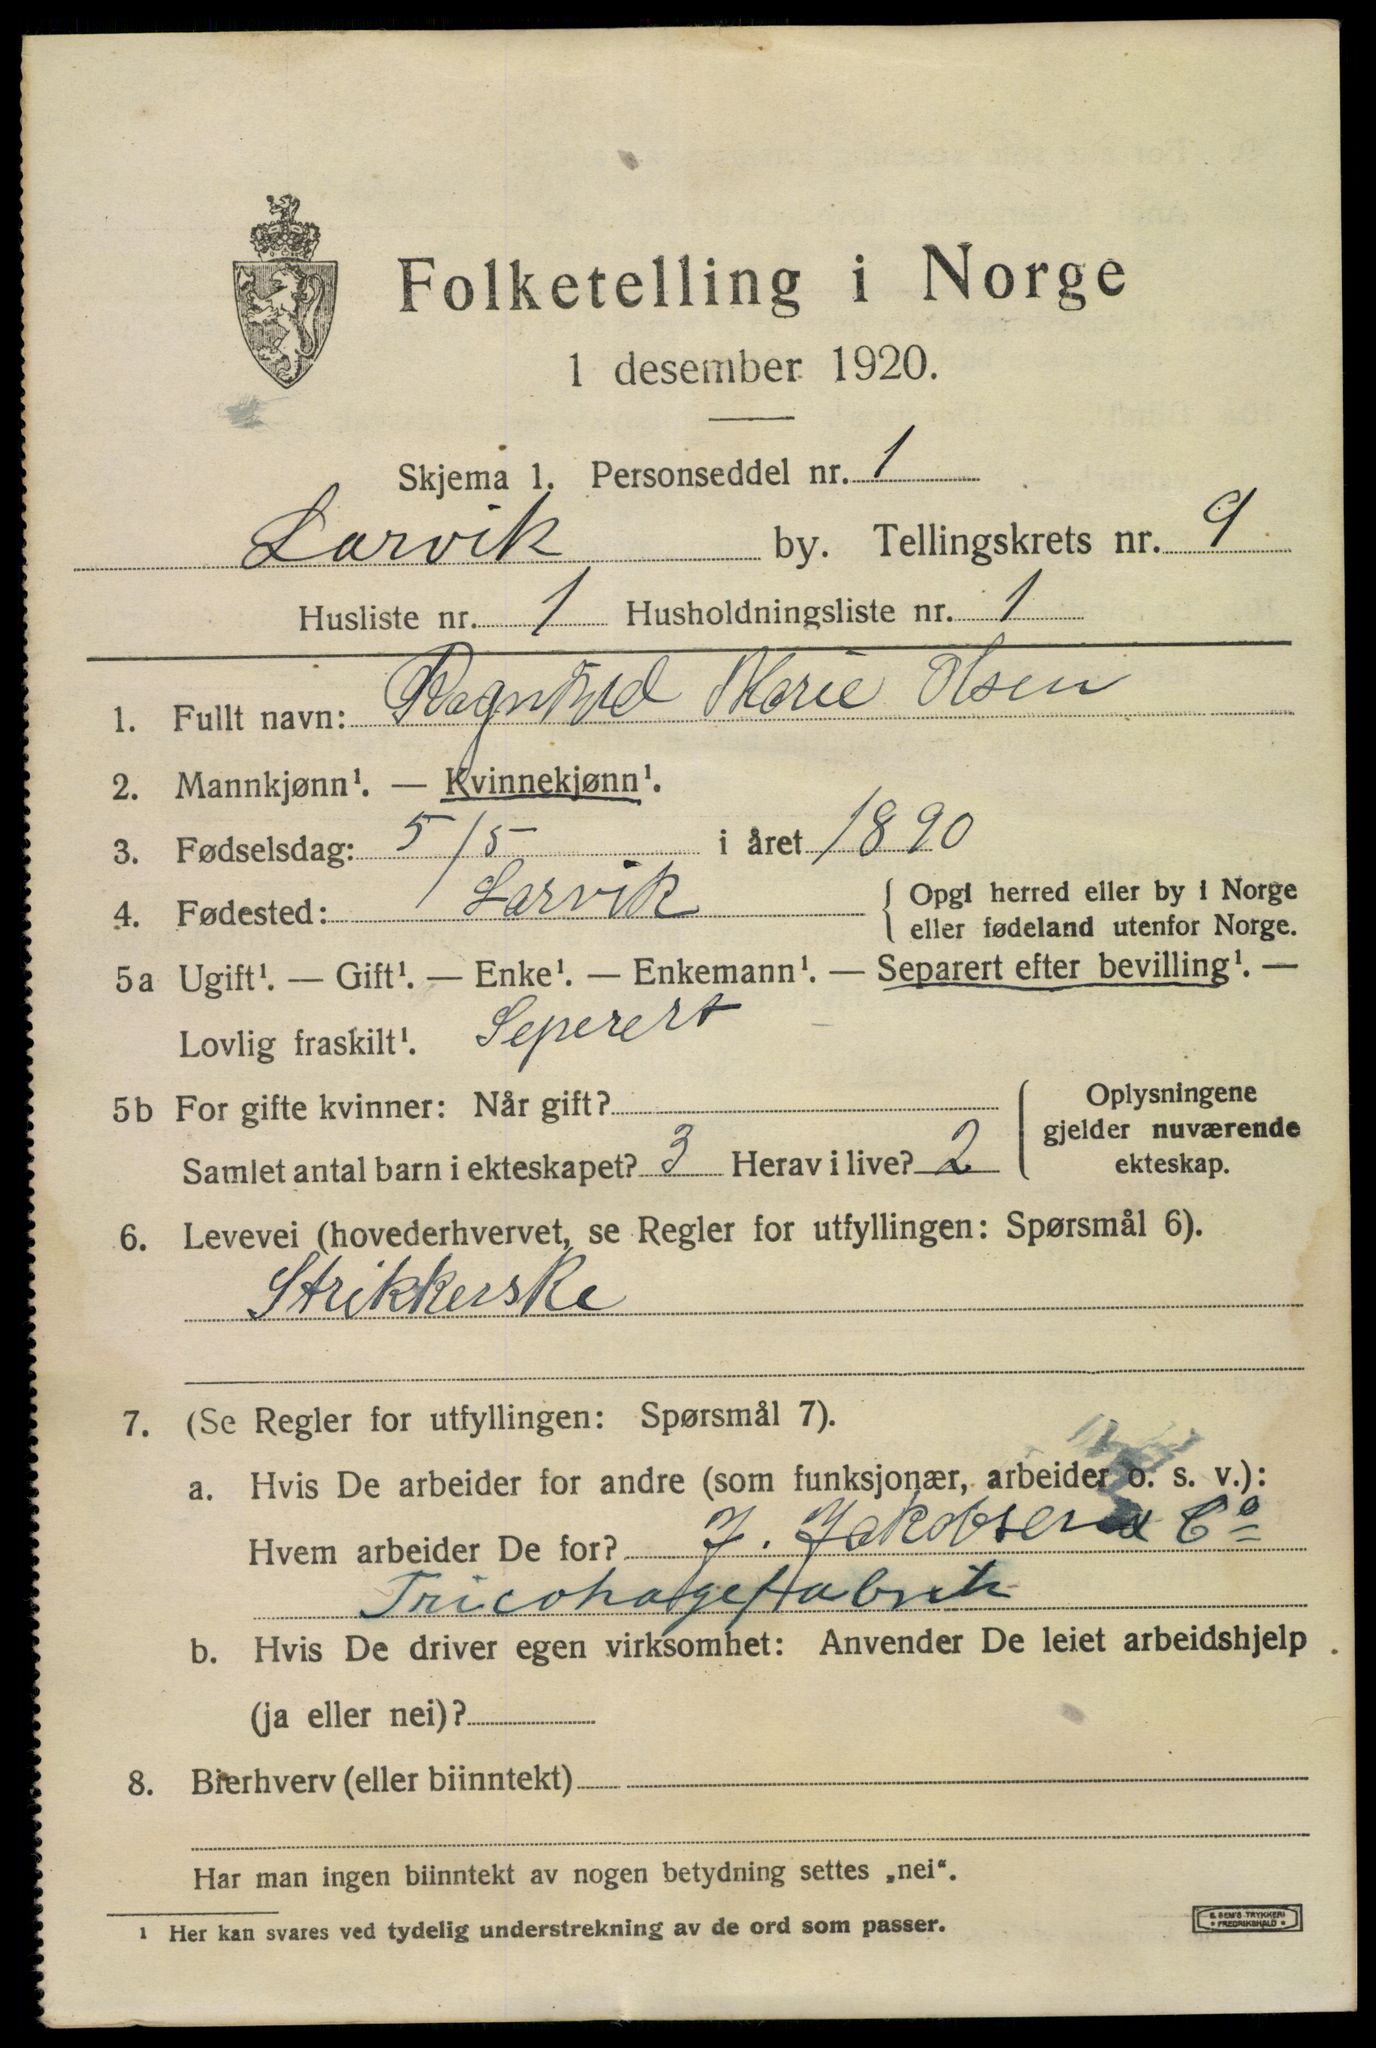 Folketelling i Norge
1 desember 1920.
Skjema 1. Personseddel nr. 1
Larvik by. Tellingskrets nr. 9
Husliste nr. 1 Husholdningsliste nr. 1
1. Fullt navn: Ragnhild Marie Olsen
2. Mannkjønn¹. — Kvinnekjønn¹.
3. Fødselsdag: 5/5 i året 1890
4. Fødested: Larvik { Opgi herred eller by i Norge
eller fødeland utenfor Norge.
5a Ugift¹. — Gift¹. — Enke¹. — Enkemann¹. — Separert efter bevilling¹. —
Lovlig fraskilt¹. Seperert
5b For gifte kvinner: Når gift? { Oplysningene
gjelder nuværende
Samlet antal barn i ekteskapet? 3 Herav i live? 2 ekteskap.
6. Levevei (hovederhvervet, se Regler for utfyllingen: Spørsmål 6).
Strikkerske
7. (Se Regler for utfyllingen: Spørsmål 7).
a. Hvis De arbeider for andre (som funksjonær, arbeider o. s. v.):
Hvem arbeider De for? J. Jakobsen & Co
Tricohagefabrik
b. Hvis De driver egen virksomhet: Anvender De leiet arbeidshjelp
(ja eller nei)?
8. Bierhverv (eller biinntekt)
Har man ingen biinntekt av nogen betydning settes „nei“.
¹ Her kan svares ved tydelig understrekning av de ord som passer.
E. SEM'S TRYKKERI
• FREDRIKSHALD •